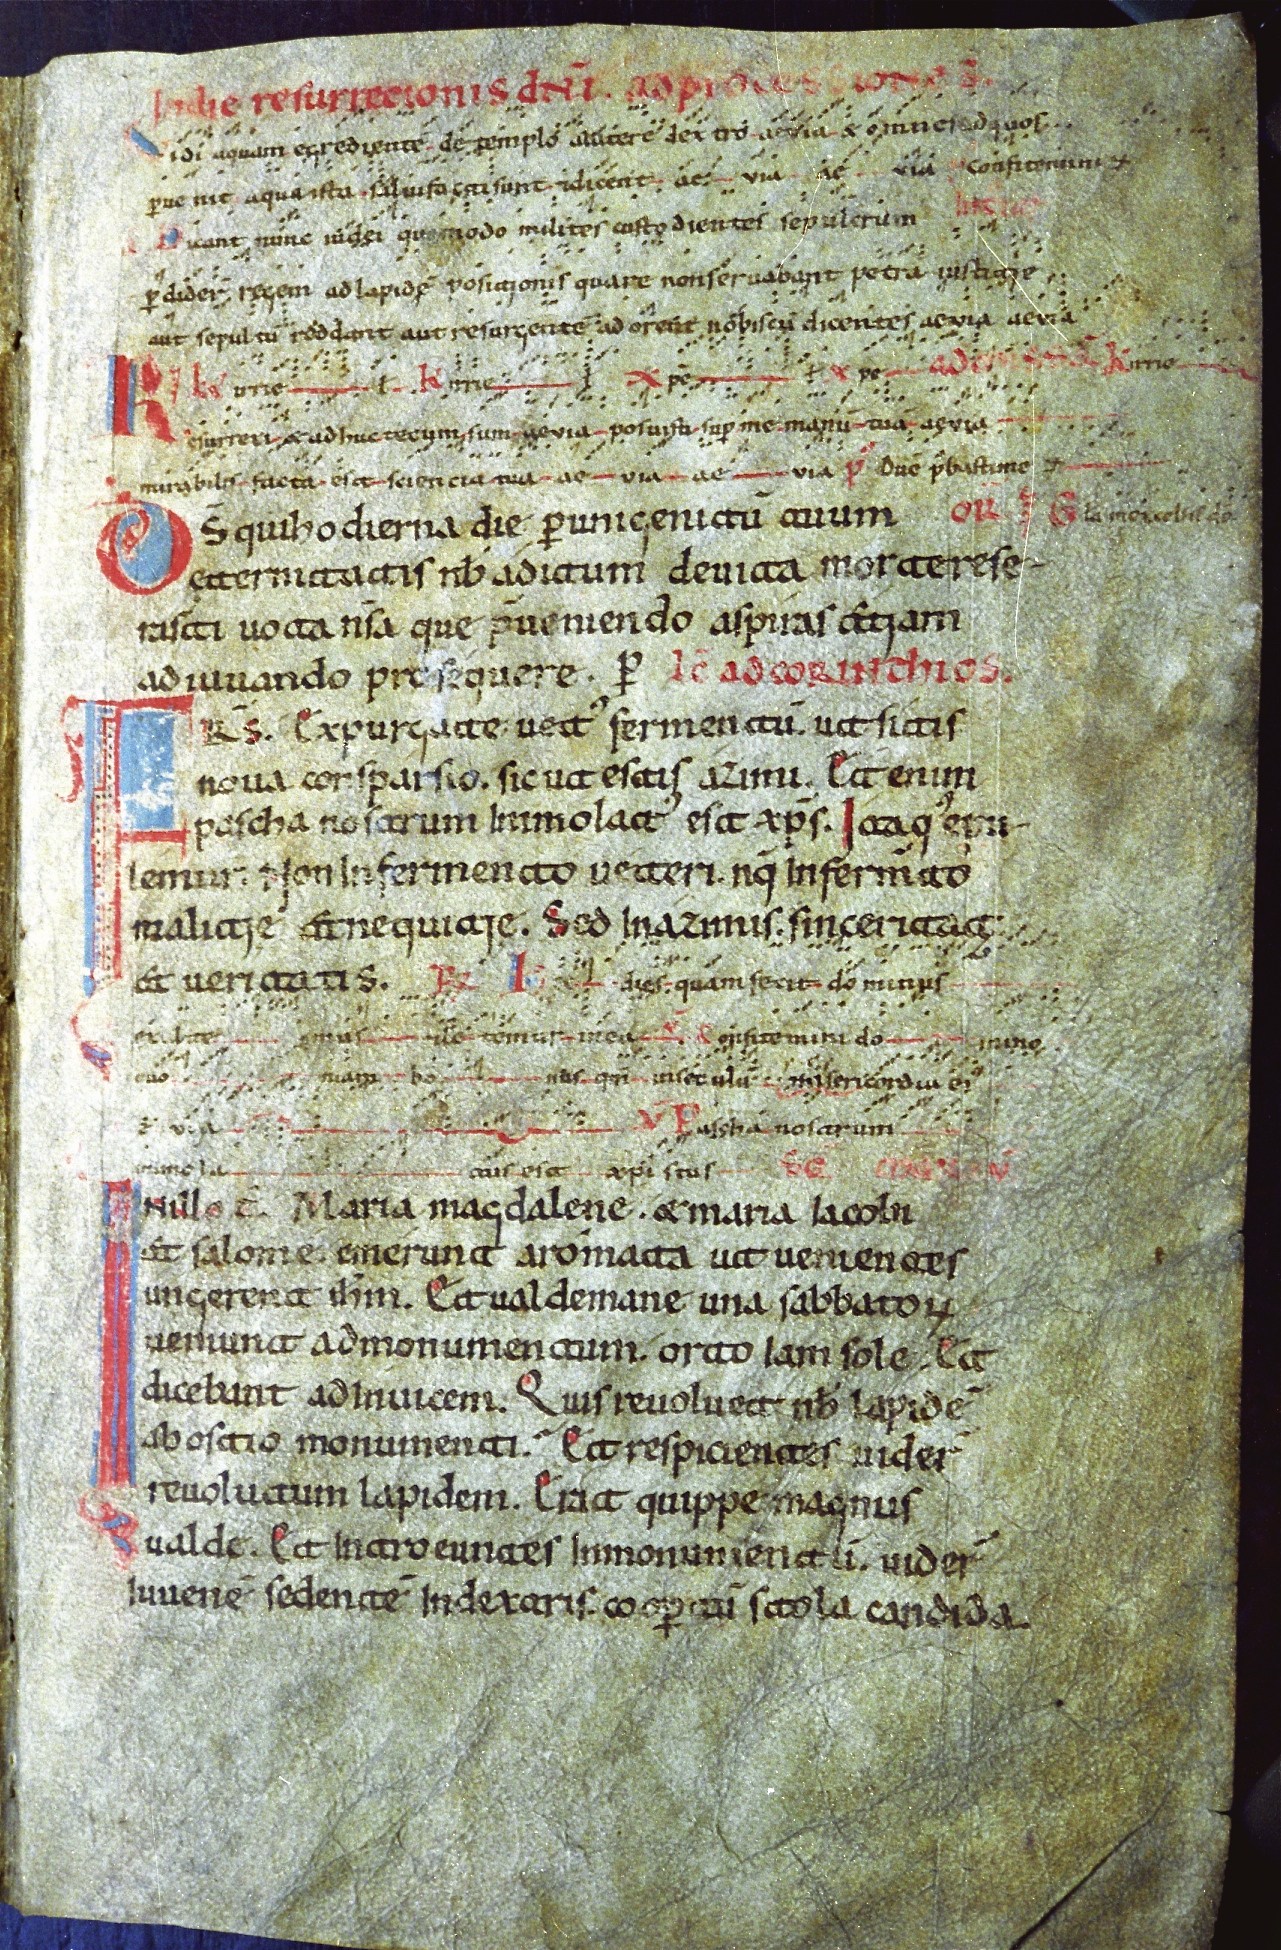 In die resurrectionis dñi. ad processionē.
Vidi aquam egredientē de templo a latere dextro aevia & omnes ad quos
peruenit aqua ista salui facti sunt & dicent ae via ae via Confitemini
Dicant nunc iudei quomodo milites custodientes sepulcrum
pdider regem ad lapidē positionis quare non seruabant petra iusticie
aut sepultū reddant aut resurgentē adorent nobiscū dicentes aevia aevia
kirrie kirrie xpe xpe kirrie
Resurrexi & adhuc tecum sum aevia posuisti sup me manū tuā aevia
mirabilis facta est sciencia tua ae via ae via Dñe pbasti me
DS qui hodierna die p unigenitū tuum Gla in excelsis dō
eternitatis nb aditum deuicta morte rese-
rasti uota nr̄a que pueniendo aspiras etiam
adiuuando prosequere. p Ic̄ ad corinthios.
FRS. Expurgate uet' fermentū. ut sitis
noua consparsio. sicut estis azimi. Et enim
pascha nostrum Immolat' est xps. Itaq' epu-
lemur. Non In fermento ueteri. nq In fermto
malitie et nequitie. Sed In azimis. sinceritat
et ueritatis. dies quam fecit dominus
exulte mus & le temur in ea Confitemini do mino
quo niam bo nus qm in seculū misericordia ei'
ae via Pascha nostrum
immola tus est xpi stus
In illo t̄. Maria magdalene. & maria Iacobi
et salome. emerunt aromata ut uenientes
ungerent ihm. Et ualde mane una sabbatoꝝ
ueniunt ad monumentum. orto Iam sole. Et
dicebant ad Inuicem. Quis reuoluet nb lapidē
ab ostio monumenti. Et respicientes uider
reuolutum lapidem. Erat quippe magnus
ualde. Et Introeuntes In monumentū. uider
Iuuenē sedentē In dextris. coopertū stola candida.